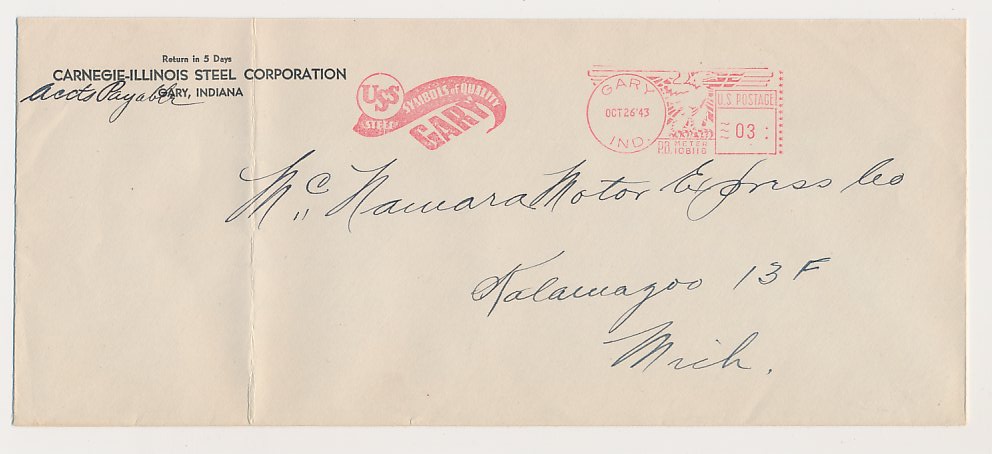 Return in 5 Days
CARNEGIE-ILLINOIS STEEL CORPORATION
Accts Payable GARY, INDIANA
USS
STEEL
SYMBOLS of QUALITY
GARY
GARY
OCT 26 '43
IND.
U.S. POSTAGE
03
P.B. METER
108116
McNamara Motor Express Co
Kalamazoo 13 F
Mich.